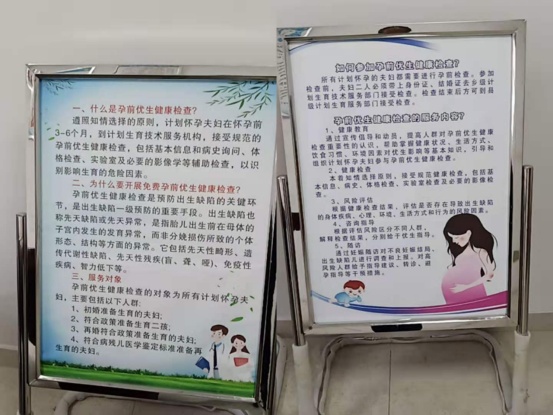 一、什么是孕前优生健康检查?
遵照知情选择的原则，计划怀孕夫妇在怀孕前
3-6个月，到计划生育技术服务机构，接受规范的
孕前优生健康检查，包括基本信息和病史询问、体
格检查、实验室及必要的影像学等辅助检查，以识
别影响生育的危险因素。
二、为什么要开展免费孕前优生健康检查?
孕前优生健康检查是预防出生缺陷的关键环
节，是出生缺陷一级预防的重要手段。出生缺陷也
称先天缺陷或先天异常，是指胎儿出生前在母体的
子宫内发生的发育异常，而非分娩损伤所致的个体
形态、结构等方面的异常。它包括先天性畸形、遗
传代谢性缺陷、先天性残疾(盲、聋)、免疫性
疾病、智力低下等。
三、服务对象
孕前优生健康检查的对象为所有计划怀孕夫
妇，主要包括以下人群:
1、初婚准备生育的夫妇;
2、符合政策准备生育二孩;
3、再婚符合政策准备生育的夫妇;
4、符合病残儿医学鉴定标准准备再
生育的夫妇。
如何参加孕前优生健康检查?
所有计划怀孕的夫妇都需要进行孕前检查。参加
检查前，夫妇二人必须带上身份证、结婚证去乡级计
划生育技术服务部门接受检查。检查结束后方可到县
级计划生育服务部门接受检查。
孕前优生健康检查的服务内容?
1、健康教育
通过宣传倡导和动员，提高人群对孕前优生健康
检查重要性的认识，帮助掌握健康状况、生活方式、
饮食习惯、环境因素对优生影响等基本知识，引导和
组织计划怀孕夫妇参与孕前优生健康检查。
2、健康检查
本着知情选择的原则，接受规范健康检查，包括基
本信息、病史、体格检查、实验室检查及必要的影像检
查。
3、风险评估
根据健康检查结果，评估是否存在导致出生缺陷
的身体疾病、心理、环境、生活方式和行为的风险因素。
4、咨询指导
根据评估风险区分不同人群，
解释检查结果，分别给予优生指导。
5、随访
通过妊娠随访对不良妊娠结局、
出生缺陷儿进行调查和上报，对高
风险人群给予指导建议、转诊、避
孕指导等干预措施。